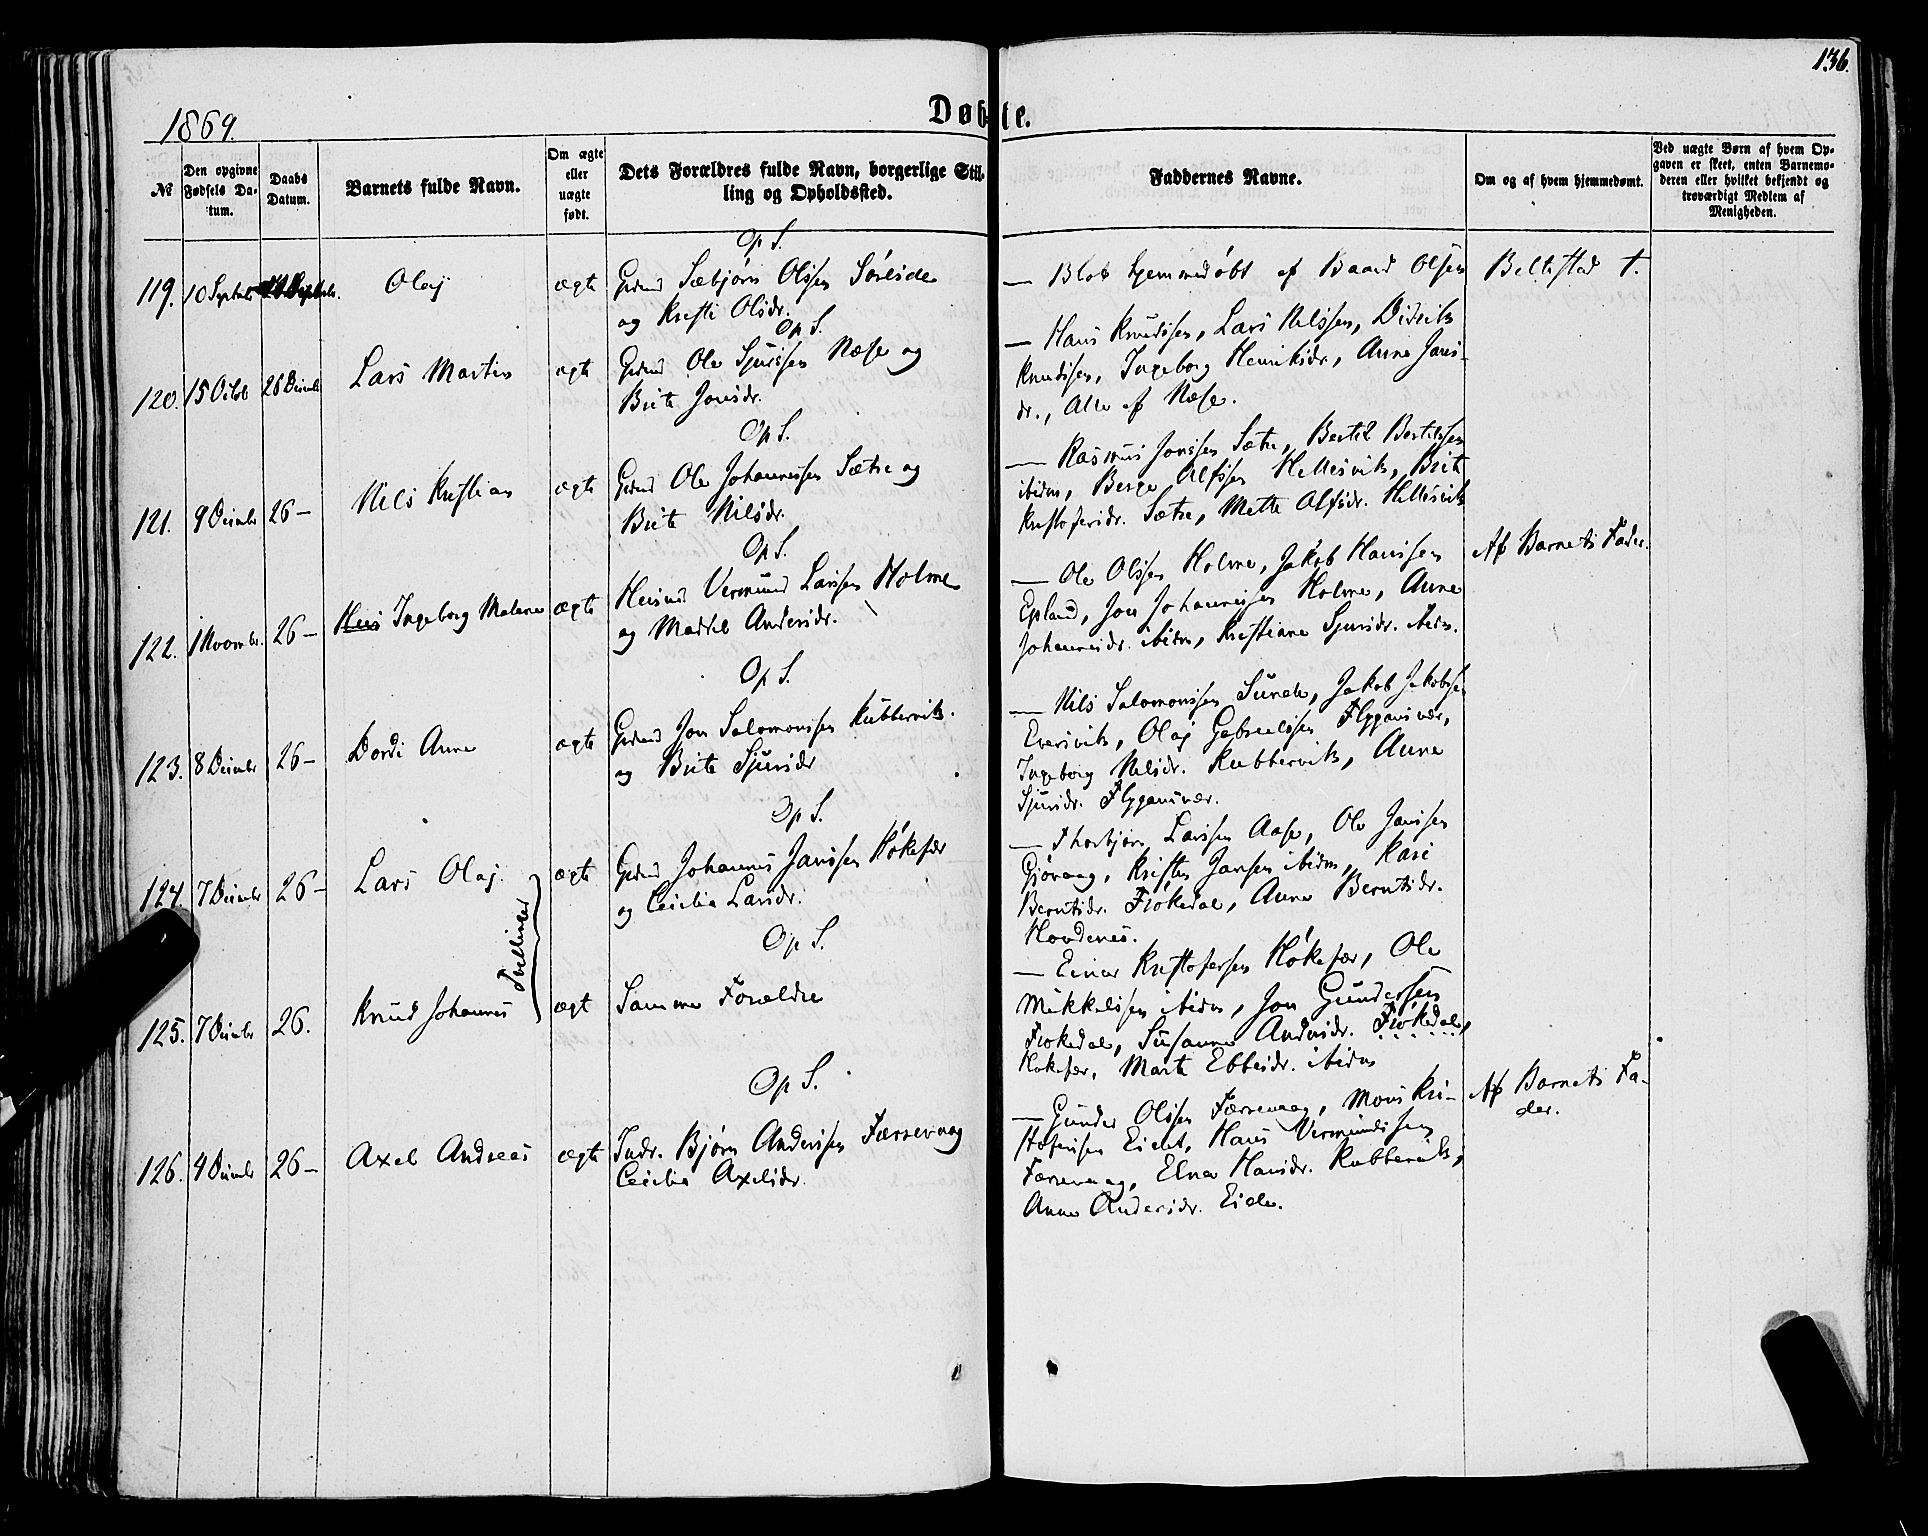 136.
1869.
Døbte.
№
Den opgivne Fødsels Datum.
Daabs Datum.
Barnets fulde Navn.
Om ægte eller uægte født.
Dets Forældres fulde Navn, borgerlige Stilling og Opholdssted.
Faddernes Navne.
Om og af hvem hjemmedømt.
Ved uægte Børn af hvem Opgaven er skeet, enten Barnemoderen eller hvilket bekjendt og troværdigt Medlem af Menigheden.
Op S.
119. 10 Septbr Olaj ægte
Grdmd Sæbjørn Olssen Söreide
og Kristi Olsdr.
— Blot hjemmedøbt af Baard Olsen
Beltestad †.
Op S.
120. 15 Octob 26 Decmbr Lars Martin ægte
Grdmd Ole Sjurssen Næse og
Brite Jonsdr.
— Hans Knudssen, Lars Nilssen, Didrik
Knudssen, Ingeborg Henriksdr, Anne Jans-
dr., Alle af Næse.
Op S.
121. 9 Decmbr 26 — Nils Kristian ægte
Grdmd Ole Johannessen Sætre og
Brite Nilsdr.
— Rasmus Jonssen Sætre, Bertel Bertelssen
ibidm, Berge Alfssen Hellesvik, Brite
Kristofersdr. Sætre, Mette Alfsdr. Hellesvik
Op S.
122. 1 Novmbr. 26 — Ingeborg Malene ægte
Husmd Vermund Larssen Holme
og Maddel Andersdr.
— Ole Olssen Holme, Jakob Hanssen
Epland, Jon Johannessen Holme, Anne
Johannesdr. ibidm, Kristiane Sjursdr. ibidm.
Af Barnets Fader.
Op S.
123. 8 Decmbr 26 — Dordi Anne ægte
Grdmd Jon Salomonssen Kubbervik.
og Brite Sjursdr
— Nils Salomonssen Sunde, Jakob Jakobssen
Eversvik, Olaj Gabrielssen Flygansvær,
Ingeborg Nilsdr. Kubbervik, Anne
Sjursdr. Flygansvær.
Op S.
124. 7 Decmbr 26 — Lars Olaj. ægte
Tvillinger
Grdmd Johannes Janssen Høkefær
og Cecilia Larsdr.
— Thorbjørn Larssen Aase, Ole Janssen
Gjøvaag, Kristen Jansen ibidm, Kari
Berntsdr. Fiokedal, Anne Berntsdr.
Hovdenes.
Op S.
125. 7 Decmbr 26. Knud Johannes ægt
Samme Forældre
— Einar Kristofersen Høkefær, Ole
Mikkelssen ibidm, Jon Gunderssen
Fiokedal, Susanne Andersdr. Fiokedal,
Høkefær, Marta Ebbesdr. ibidm
Op S.
126. 4 Decmbr 26 — Axel Andreas ægte
Indr. Bjørn Anderssen Færrevaag
Cecilia Axelsdr.
— Gunder Olssen Færrevaag, Mons Kri-
stofersen Eide, Hans Vermundssen
Færrevaag, Elna Hansdr. Kubbervik,
Anne Andersdr. Eide.
Af Barnets Fa-
der.